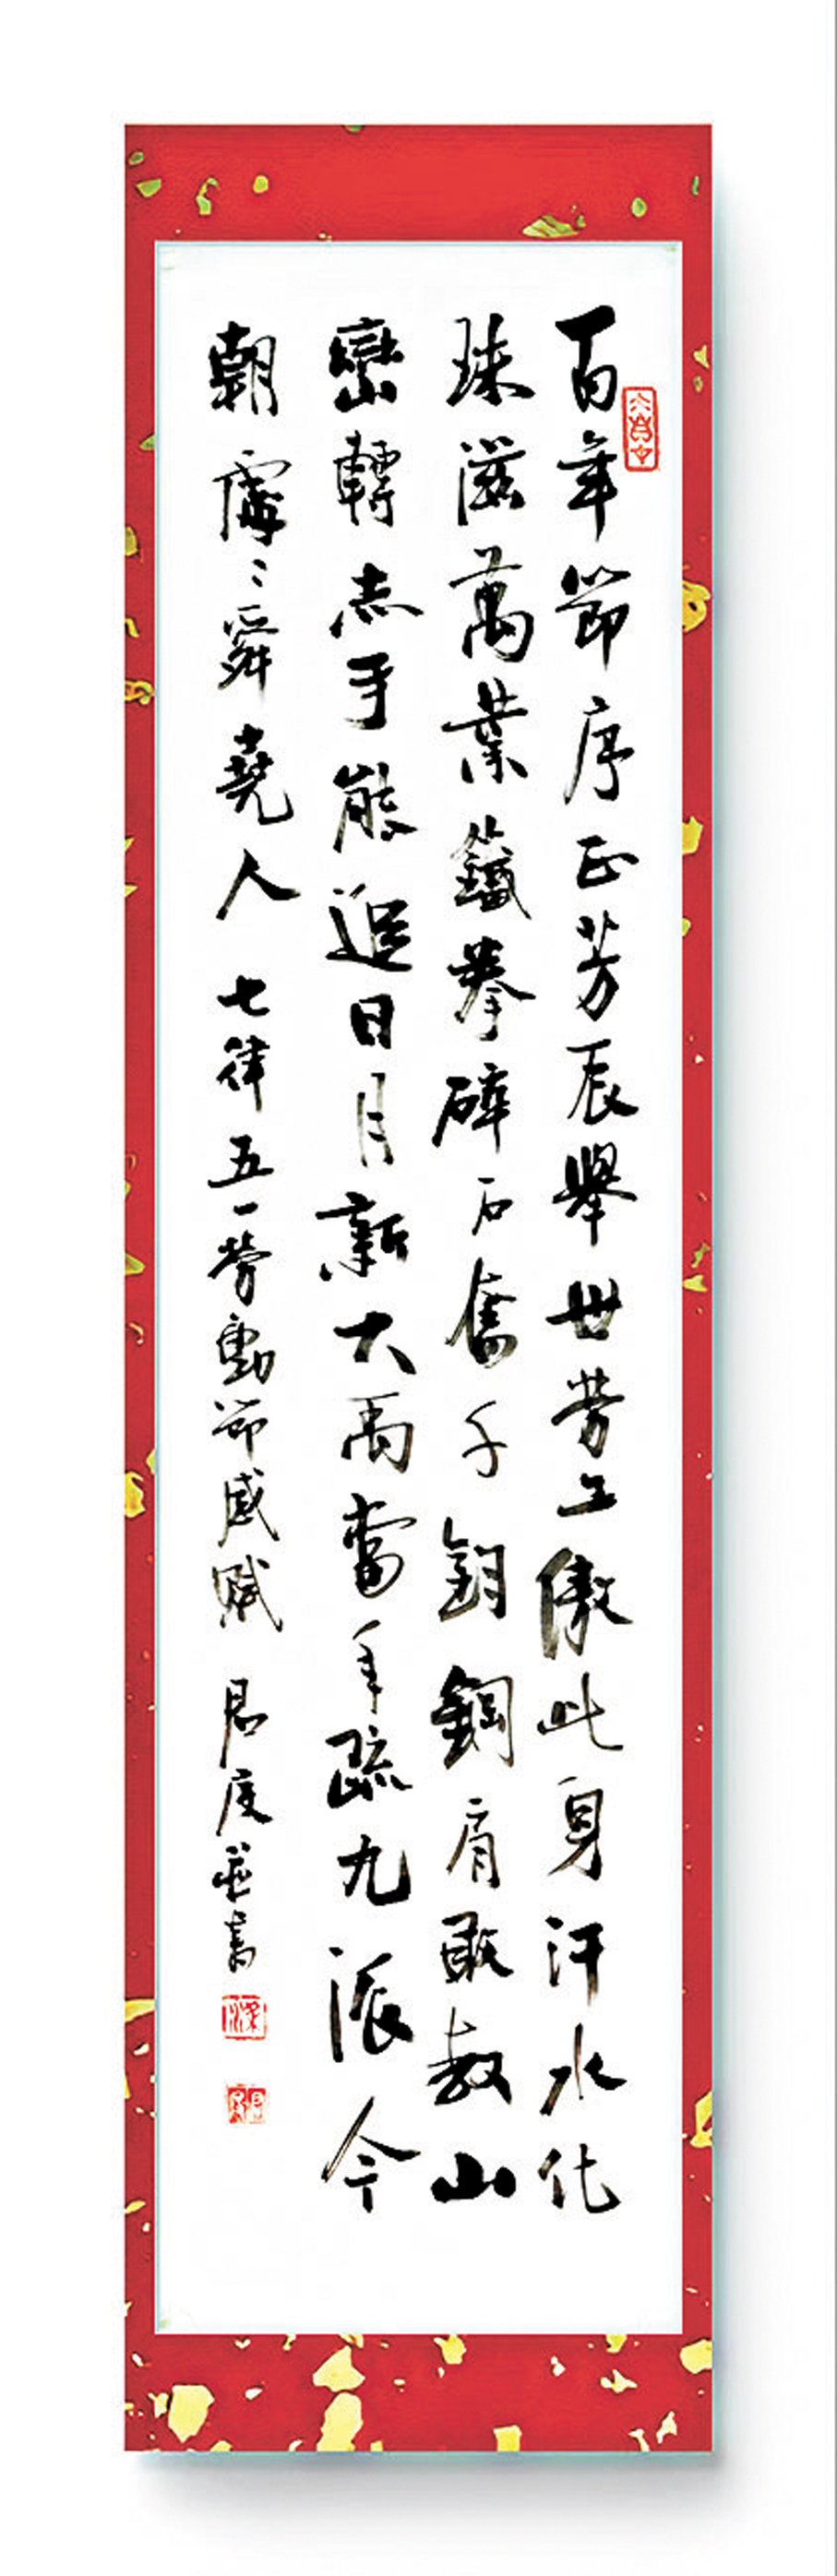 百年節序正芳辰舉世勞工傲此身汗水化
珠滋萬葉鐵拳碎石奮千鈞鋼肩敢教山
巒轉赤手能追日月新大禹當年疏九派今
朝處〻舜堯人 七律五一勞動節感賦 君度並書